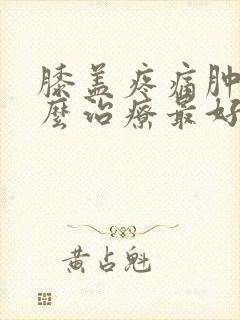 膝盖疼痛肿
麼治療最好
黄占魁